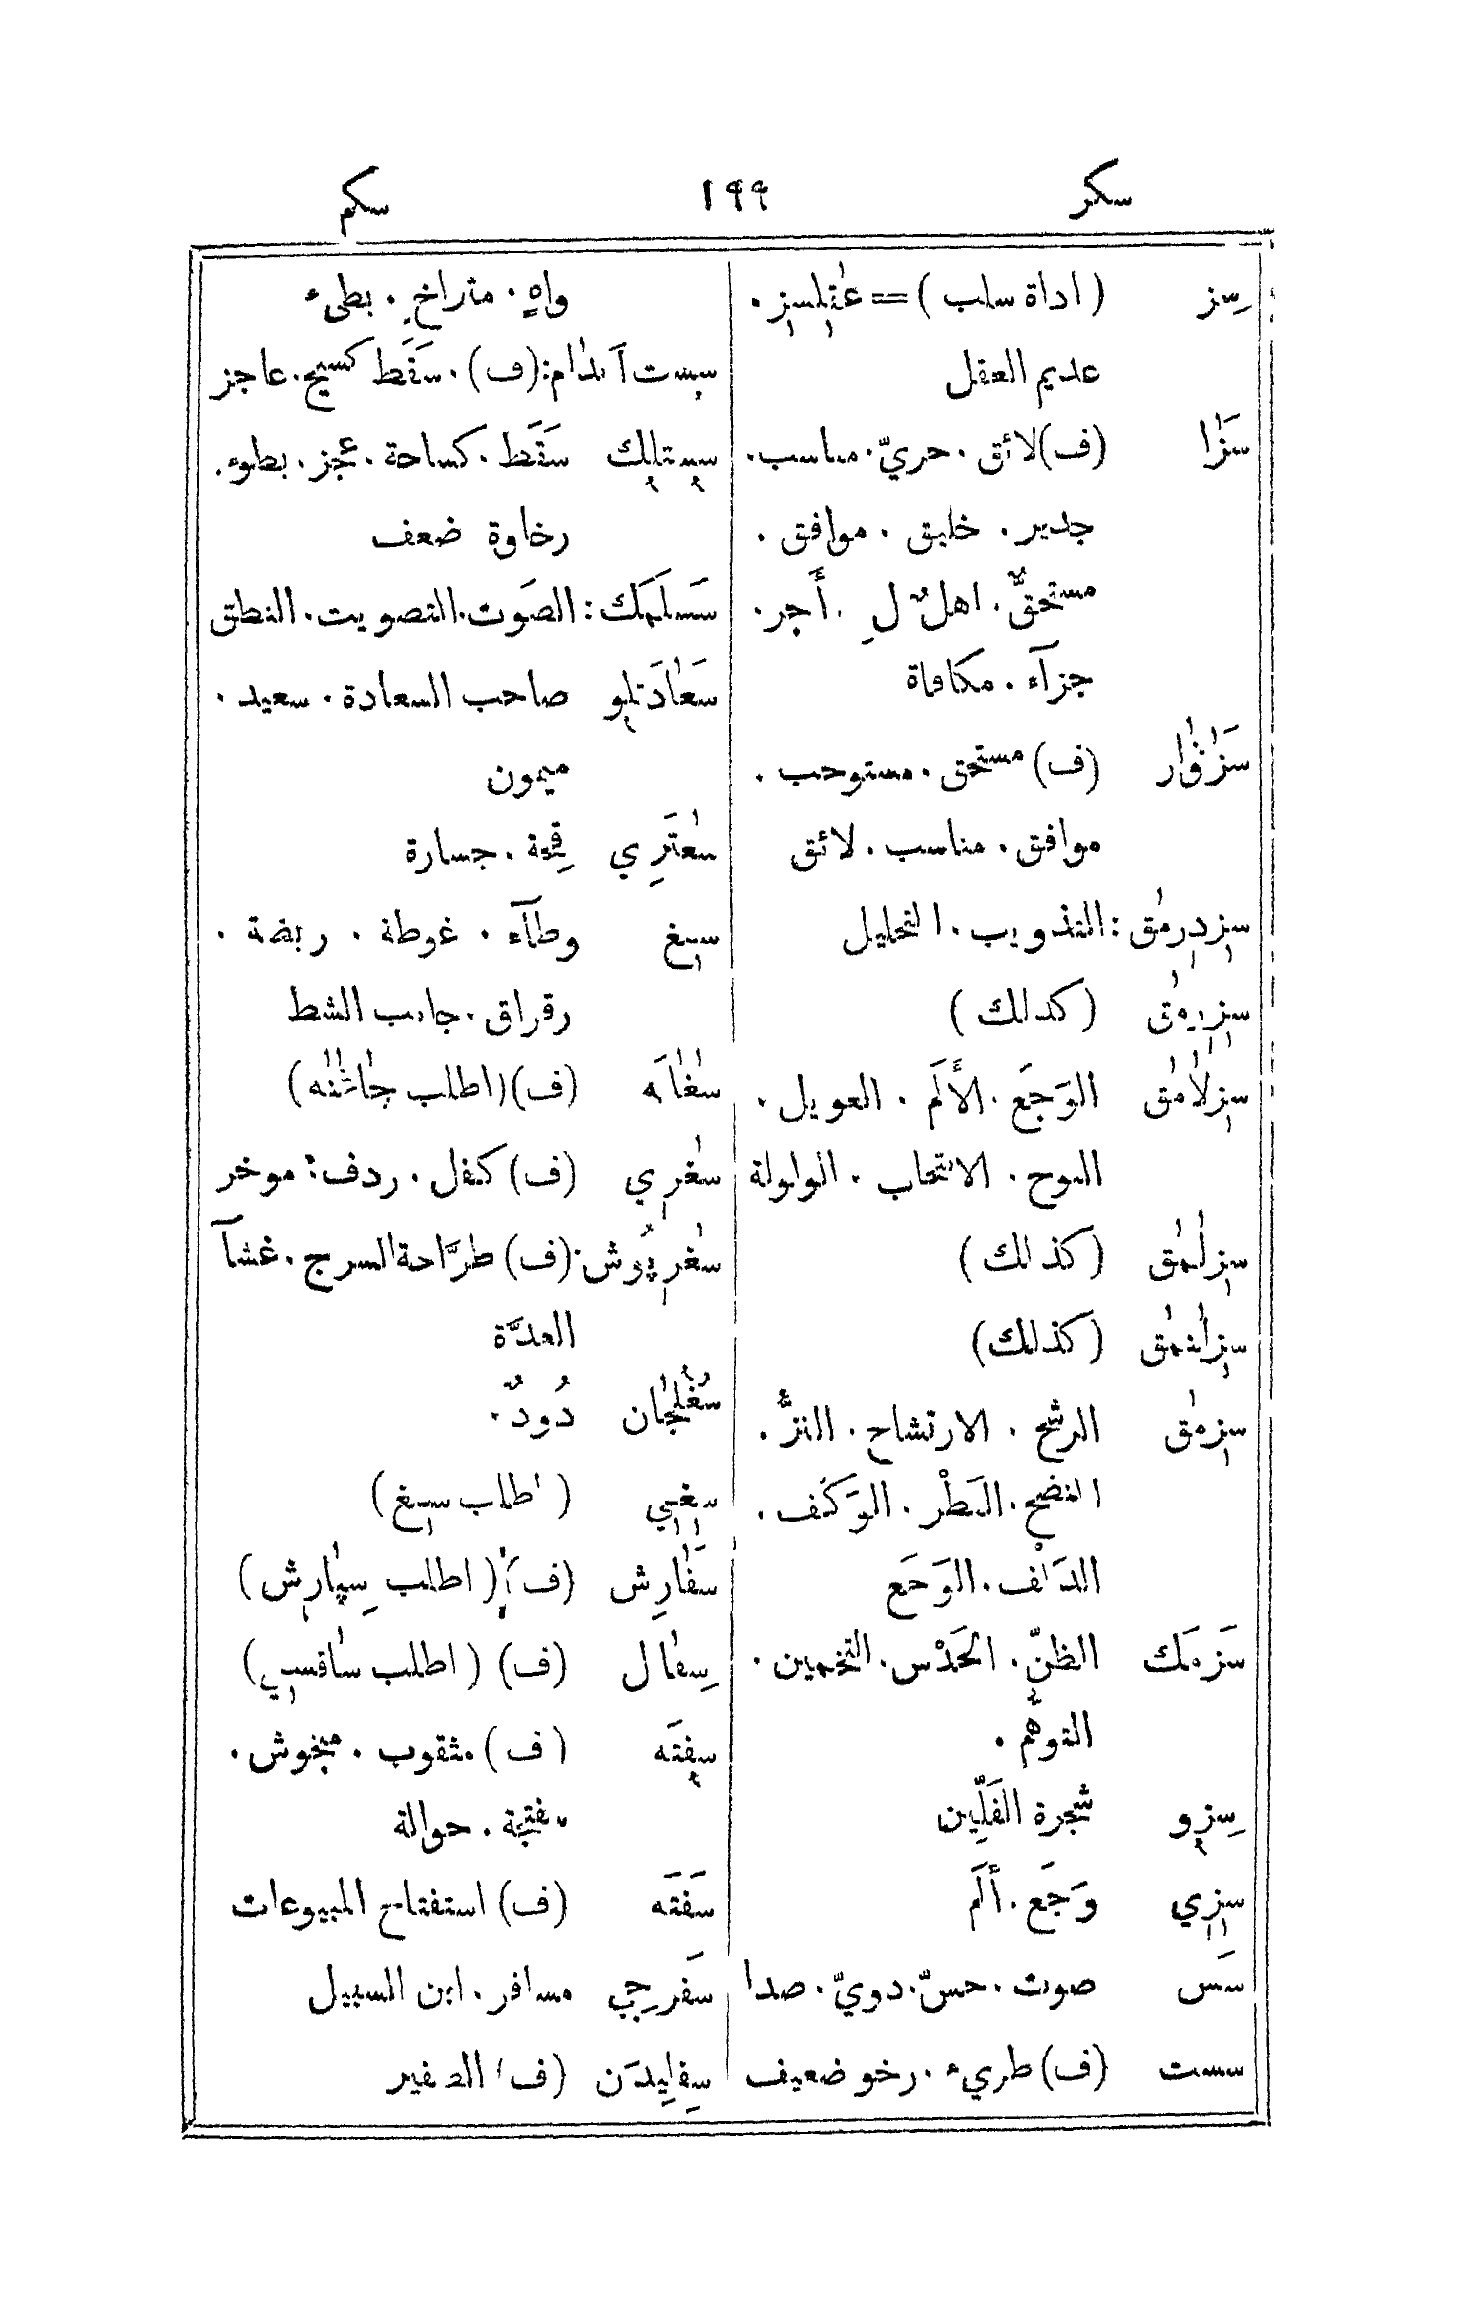 سكر ١٩٩ سكم
سِز (اداة سلب) = عقلسز.
عديم العقل
سَزا (ف) لائق. حريّ. مناسب.
جدير. خليق. موافق.
مستحقٌّ. اهلٌ لِ. أجر.
جزآء. مكافاة
سَزاوار (ف) مستحق. مستوجب.
موافق. مناسب. لائق
سزدرمق: التذويب. التحليل
سزرمق (كذلك)
سزلامق الوَجَع. الأَلَم. العويل.
النوح. الانتحاب. الولولة
سزلمق (كذلك)
سزلنمق (كذلك)
سزمق الرشح. الارتشاح. النزّ.
النضح. القَطْر. الوَكَف.
الدَلْف. الوَجَع
سَزمَك الظنّ. الحَدْس. التخمين.
التوهّم.
سِزو شجرة الفَلِّين
سزي وَجَع. أَلَم
سَس صوت. حسّ. دويّ. صدا
سست (ف) طريء. رخو ضعيف
واهٍ. متراخٍ. بطيء
سست آندام: (ف). سَقَط كسيح. عاجز
سستلك سَقَط. كساحة. عجز. بطوء.
رخاوة ضعف
سَسلَمَك: الصَوت. التصويت. النطق
سَعادَتلو صاحب السعادة. سعيد.
ميمون
سعتَرِي قِحة. جسارة
سغ وطآء. غوطة. ربضة.
رقراق. جانب الشط
سغانَه (ف) (اطلب چاشنه)
سغري (ف) كفل. ردف: موخر
سغرپُوش: (ف) طرَّاحة السرج. غشآ
العدَّة
سُغلجان دُودٌ.
سغي (اطلب سغ)
سَفارِش (ف) (اطلب سِپارِش)
سِفال (ف) (اطلب ساقسي)
سفتَه (ف) مثقوب. منخوش.
سفتجة. حوالة
سَفتَه (ف) استفتاح المبيوعات
سَفرجي مسافر. ابن السبيل
سِفليدَن (ف) الصفير